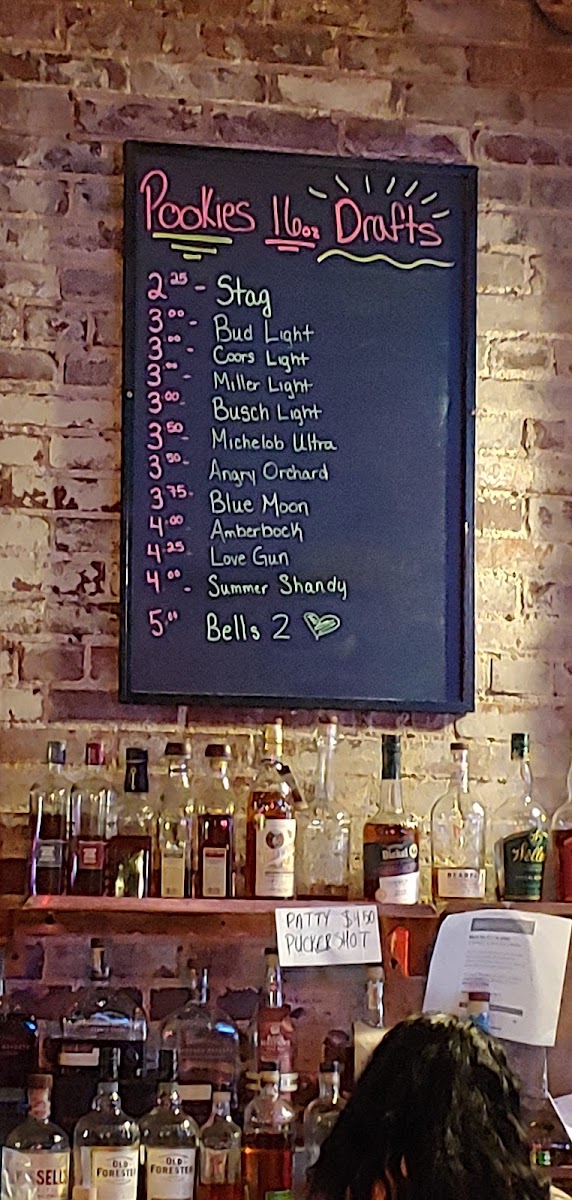 Pookies 16oz Drafts
2.25 - Stag
3.00 - Bud Light
3.00 - Coors Light
3.00 - Miller Light
3.00 - Busch Light
3.50 - Michelob Ultra
3.50 - Angry Orchard
3.75 - Blue Moon
4.00 - Amberbock
4.25 - Love Gun
4.00 - Summer Shandy
5.00 Bells 2
Dickel
Weller
PATTY $4.50
PUCKER SHOT
OLD FORESTER
OLD FORESTER